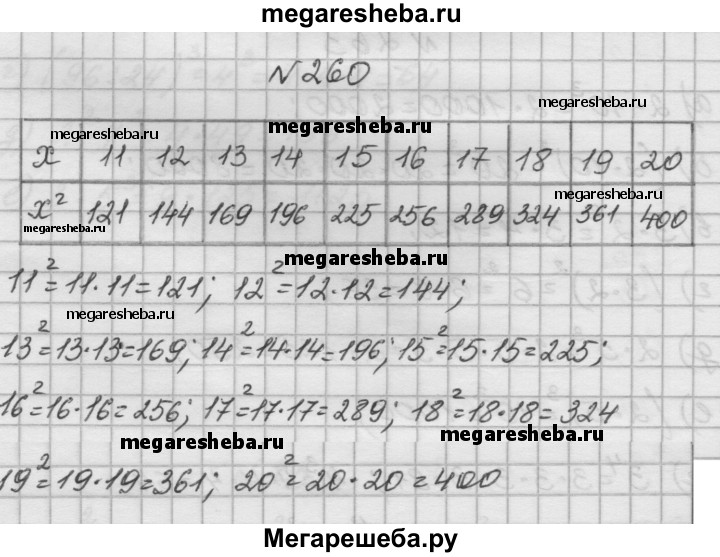 megaresheba.ru
№260
megaresheba.ru
megaresheba.ru
megaresheba.ru
x 11 12 13 14 15 16 17 18 19 20
megaresheba.ru
x² 121 144 169 196 225 256 289 324 361 400
megaresheba.ru
megaresheba.ru
11²=11·11=121; 12²=12·12=144;
megaresheba.ru
13²=13·13=169; 14²=14·14=196; 15²=15·15=225;
16²=16·16=256; 17²=17·17=289; 18²=18·18=324
megaresheba.ru
megaresheba.ru
19²=19·19=361; 20²=20·20=400
Мегарешеба.ру